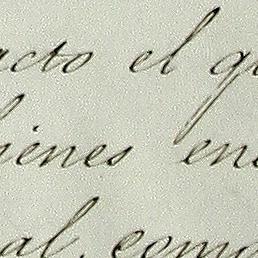 acto el q
ienes en
al, como